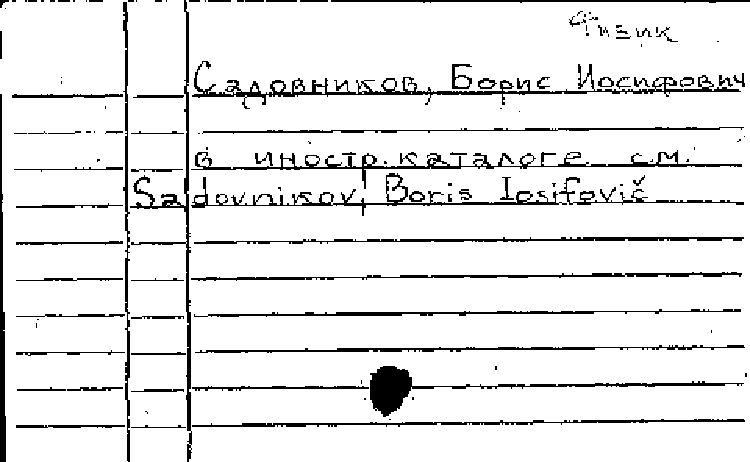 Физик
Садовников, Борис Иосифович
в иностр. каталоге см.
Sadovnikov, Boris Iosifovič